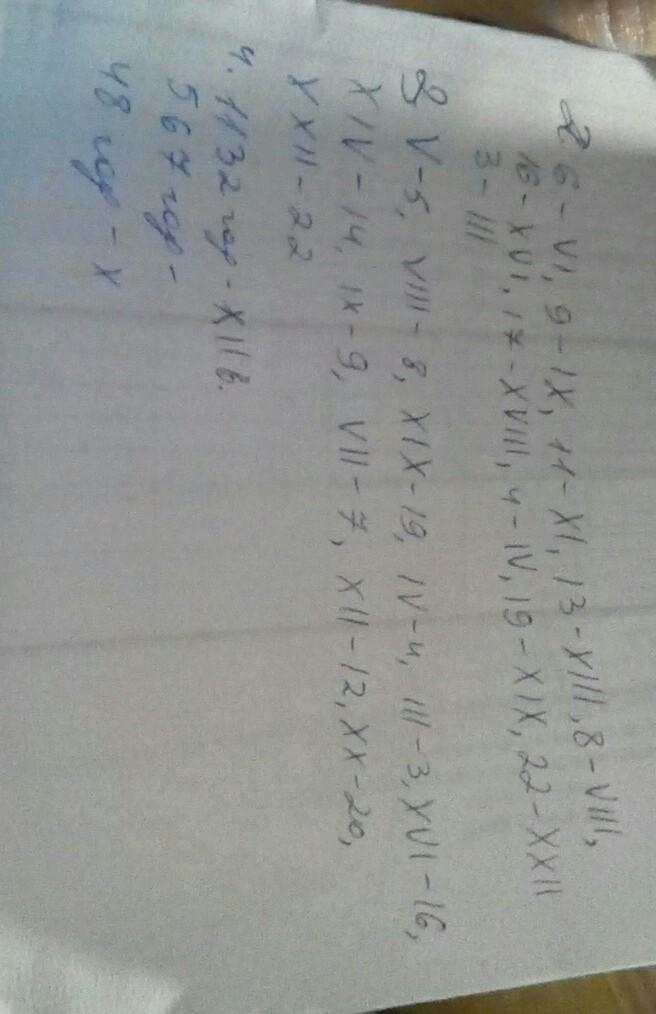 2 6 - VI, 9 - IX, 11 - XI, 13 - XIII, 8 - VIII,
16 - XVI, 17 - XVIII, 4 - IV, 19 - XIX, 22 - XXII
3 - III
3 V - 5, VIII - 8, XIX - 19, IV - 4, III - 3, XVI - 16,
XIV - 14, IX - 9, VII - 7, XII - 12, XX - 20,
XXII - 22
4. 1132 год - XII в.
567 год -
48 год - X